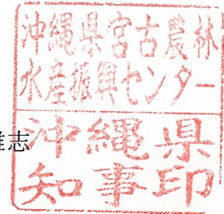 沖縄県宮古農林
水産振興センター
雅志
沖縄県
知事印